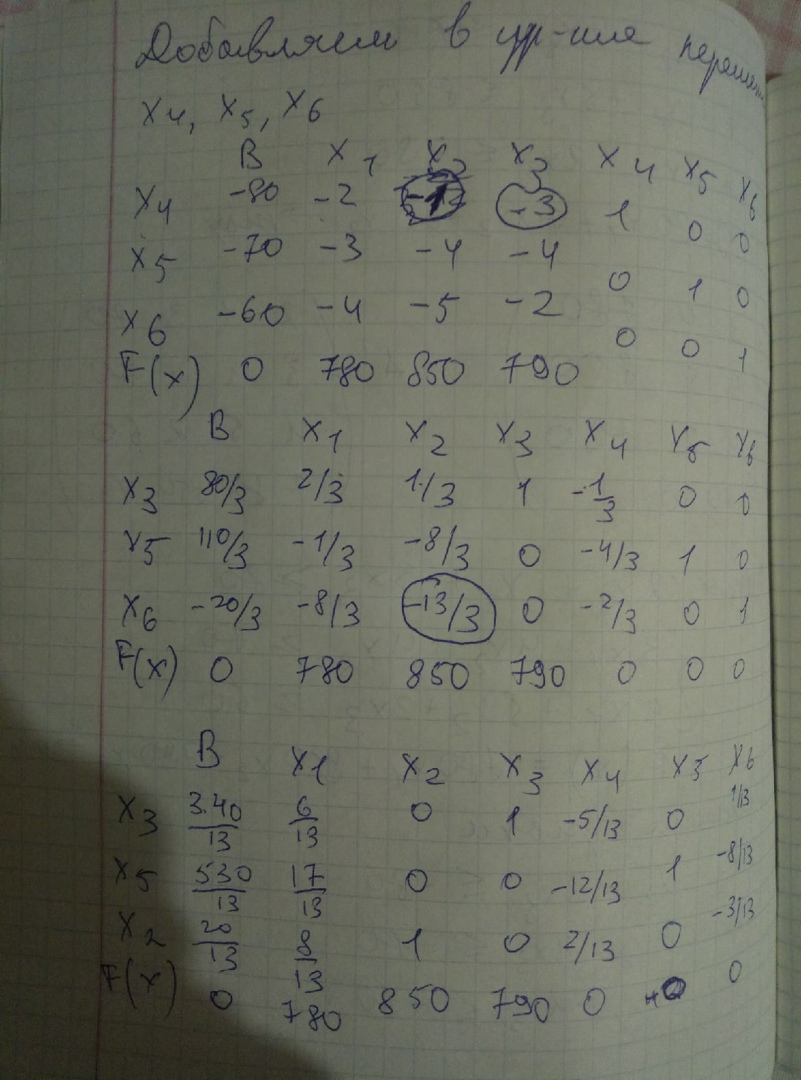 Добавляем в ур-ние
X4, X5, X6
B X1 X2 X3 X4 X5 X6
X4 -80 -2 -3 1 0 0
X5 -70 -3 -4 -4 0 1 0
X6 -60 -4 -5 -2 0 0 1
F(x) 0 780 850 790
B X1 X2 X3 X4 X5 X6
X3 80/3 2/3 1/3 1 -1/3 0 0
X5 110/3 -1/3 -8/3 0 -4/3 1 0
X6 -20/3 -8/3 -13/3 0 -2/3 0 1
F(x) 0 780 850 790 0 0 0
B X1 X2 X3 X4 X5 X6
X3 340/13 6/13 0 1 -5/13 0 1/13
X5 530/13 17/13 0 0 -12/13 1 -8/13
X2 20/13 8/13 1 0 2/13 0 -3/13
F(x) 0 780 850 790 0 0 0